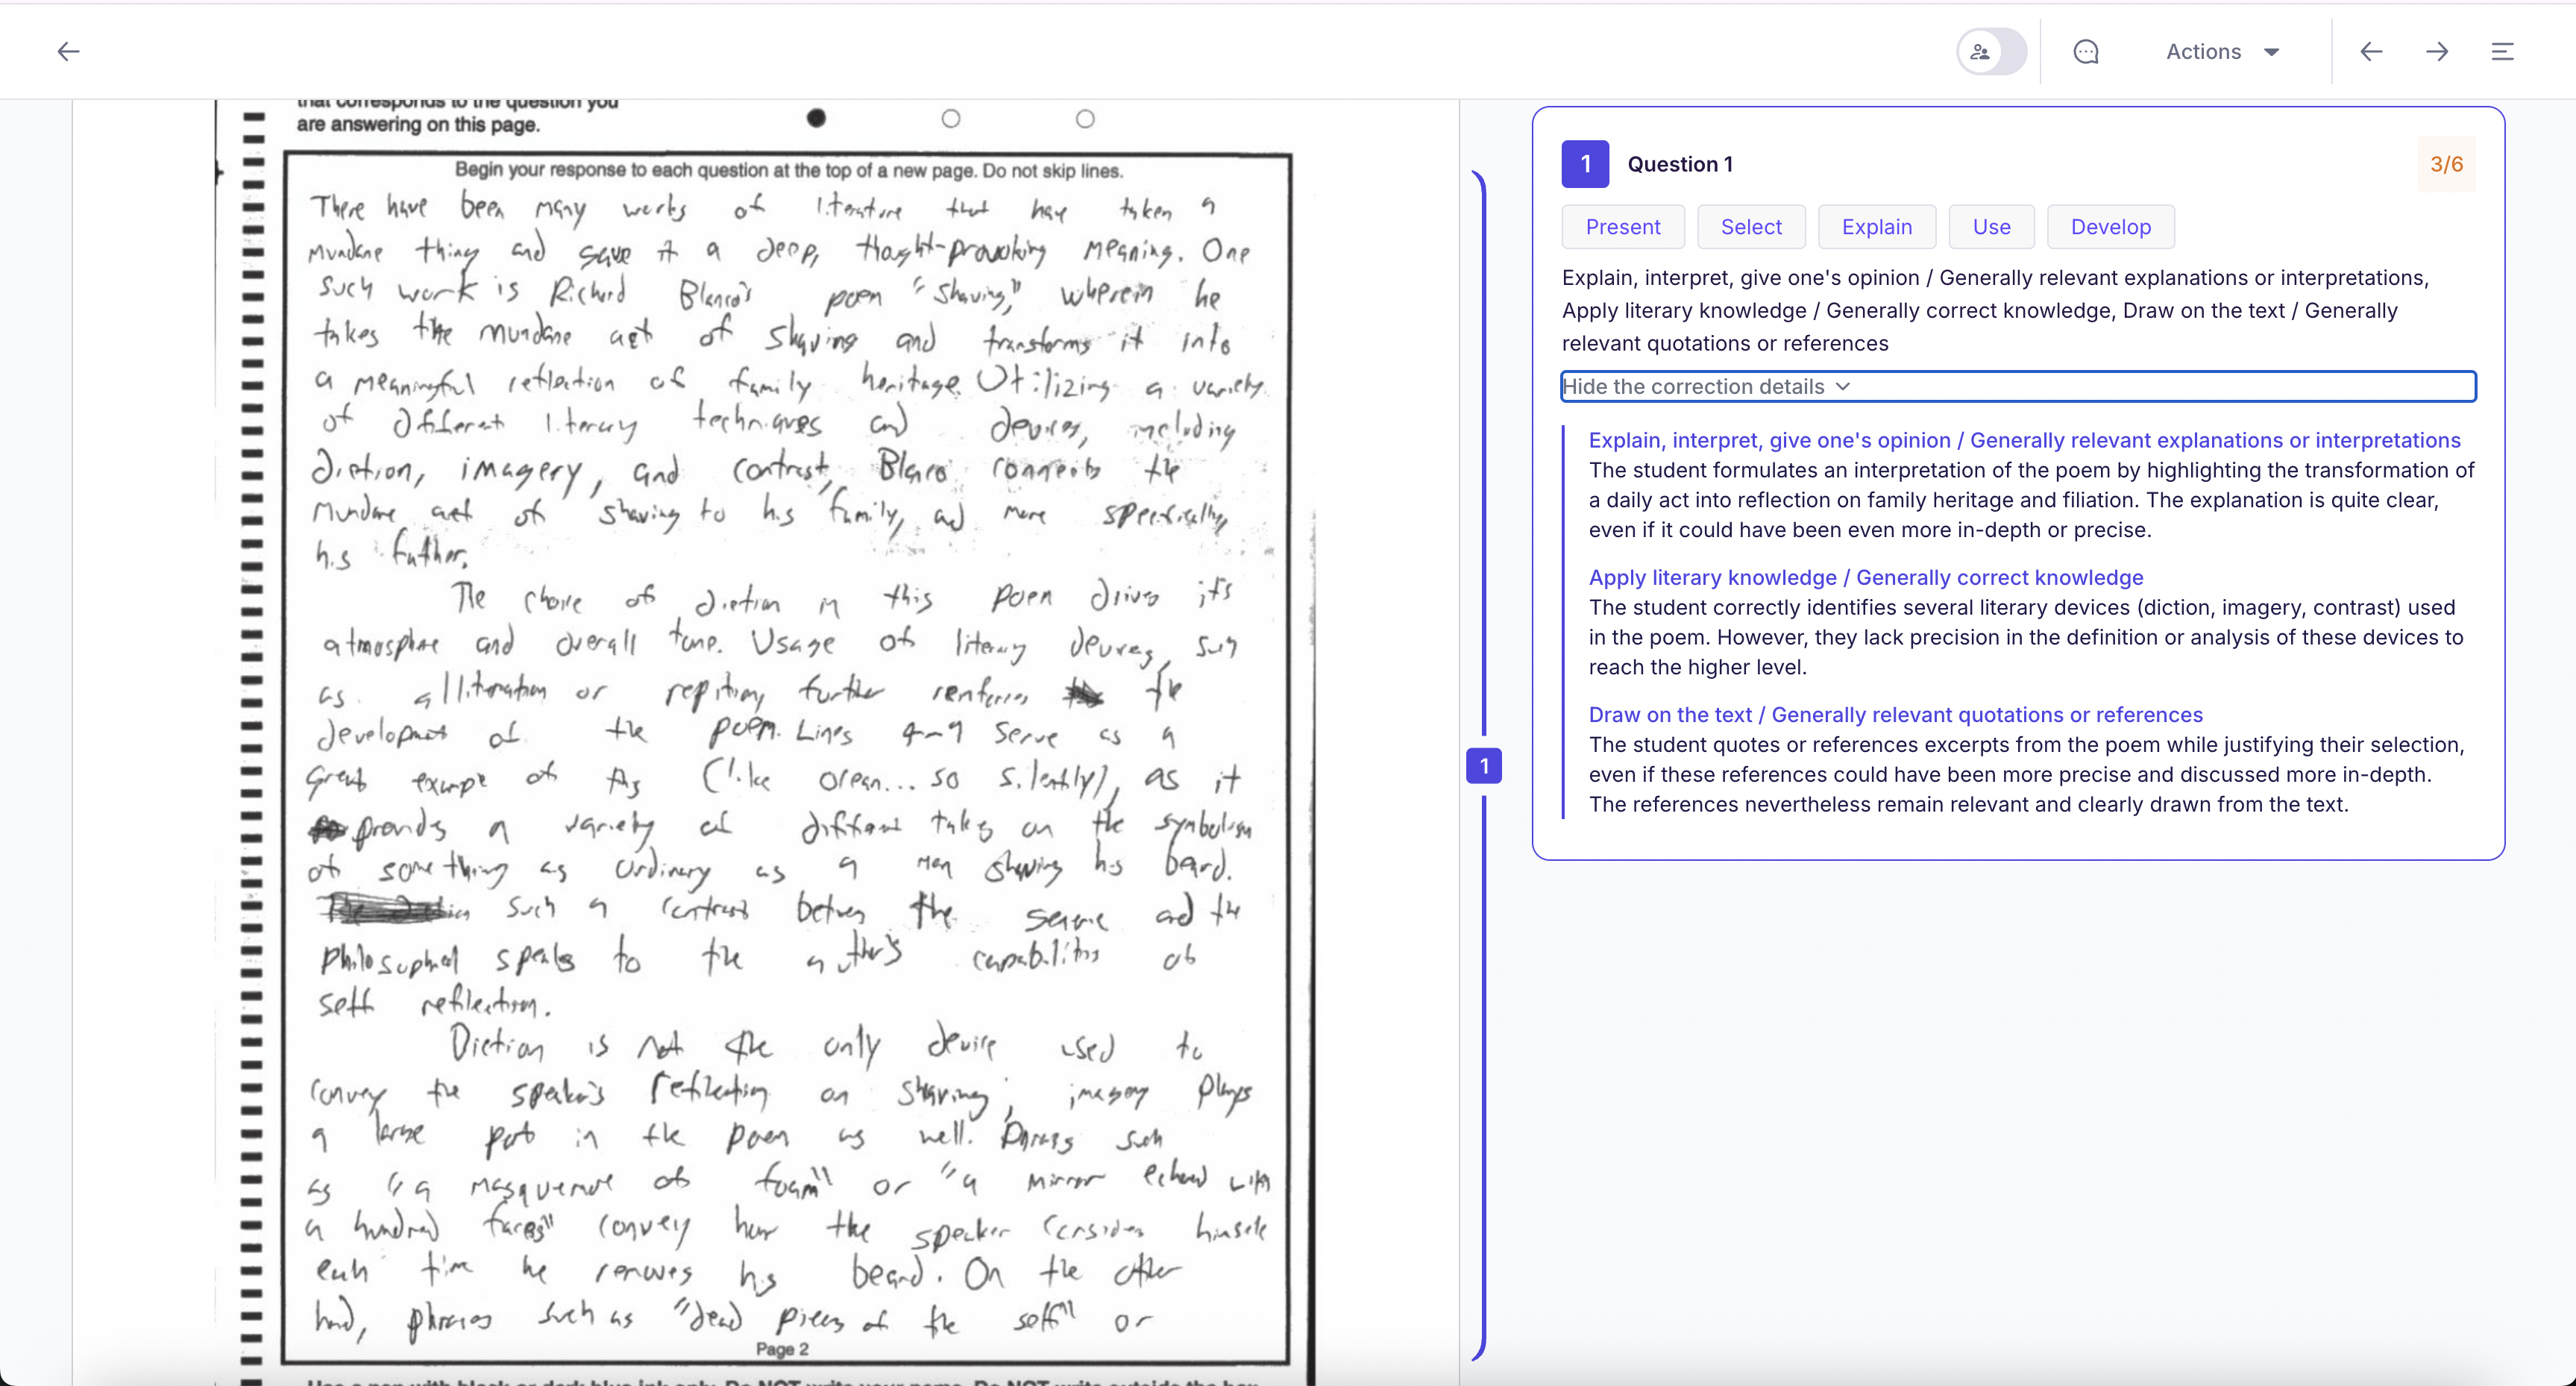 Actions
that corresponds to the question you
are answering on this page.
Begin your response to each question at the top of a new page. Do not skip lines.
There have been many works of literature that have taken a
mundane thing and gave it a deep, thought-provoking meaning. One
such work is Richard Blanco's poem "Shaving," wherein he
takes the mundane act of shaving and transforms it into
a meaningful reflection of family heritage. Utilizing a variety
of different literary techniques and devices, including
diction, imagery, and contrast, Blanco connects the
mundane act of shaving to his family, and more specifically,
his father.
The choice of diction in this poem drives it's
atmosphere and overall tone. Usage of literary devices, such
as alliteration or repitiony further renforces the
development of the poem. Lines 4-9 serve as a
great exampe of this (like ocean... so silently), as it
provides a variety of different takes on the symbolism
of something as ordinary as a man shaving his beard.
Such a contrast between the serene and the
philosophical speaks to the author's capabilities of
self reflection.
Diction is not the only device used to
convey the speaker's reflection on shaving; imagery plays
a large part in the poem as well. Phrases such
as "a masquerade of foam" or "a mirror echoed with
a hundred faces" convey how the speaker considers himself
each time he removes his beard. On the other
hand, phrases such as "dead pieces of the self" or
Page 2
1
1 Question 1 3/6
Present Select Explain Use Develop
Explain, interpret, give one's opinion / Generally relevant explanations or interpretations,
Apply literary knowledge / Generally correct knowledge, Draw on the text / Generally
relevant quotations or references
Hide the correction details
Explain, interpret, give one's opinion / Generally relevant explanations or interpretations
The student formulates an interpretation of the poem by highlighting the transformation of
a daily act into reflection on family heritage and filiation. The explanation is quite clear,
even if it could have been even more in-depth or precise.
Apply literary knowledge / Generally correct knowledge
The student correctly identifies several literary devices (diction, imagery, contrast) used
in the poem. However, they lack precision in the definition or analysis of these devices to
reach the higher level.
Draw on the text / Generally relevant quotations or references
The student quotes or references excerpts from the poem while justifying their selection,
even if these references could have been more precise and discussed more in-depth.
The references nevertheless remain relevant and clearly drawn from the text.